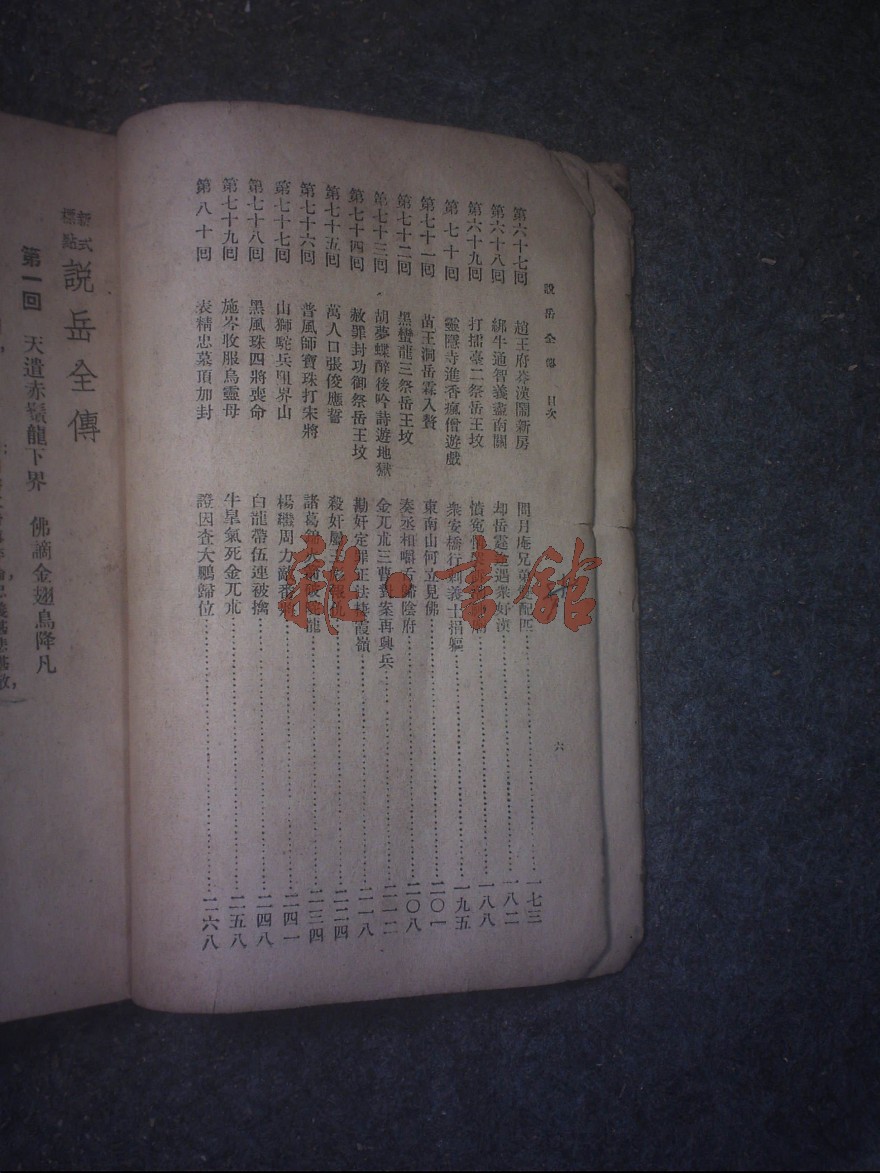 說岳全傳 目次
六
第六十七回 趙王府莽漢鬧新房 問月庵兄弟配匹 一七三
第六十八回 綁牛通智義盡南關 却岳霆途遇衆好漢 一八二
第六十九回 打擂臺二祭岳王坟 憤冤 一八八
第七十回 靈隱寺進香瘋僧遊戲 衆安橋行刺義士捐軀 一九五
第七十一回 苗王洞岳霖入贅 東南山何立見佛 二〇一
第七十二回 黑蠻龍三祭岳王坟 秦丞相嚼舌歸陰府 二〇八
第七十三回 胡夢蝶醉後吟詩遊地獄 金兀朮三曹對案再興兵 二一二
第七十四回 赦罪封功御祭岳王坟 勘奸定罪正法棲霞嶺 二一八
第七十五回 萬人口張俊應誓 殺奸屬 二二四
第七十六回 普風師寶珠打宋將 諸葛錦 龍 二三四
第七十七回 山獅駝兵阻界山 楊繼周力敵番將 二四一
第七十八回 黑風珠四將喪命 白龍帶伍連被擒 二四八
第七十九回 施岑收服烏靈母 牛臯氣死金兀朮 二五八
第八十回 表精忠墓頂加封 證因查大鵬歸位 二六八
新式標點 說岳全傳
第一回 天遣赤鬚龍下界 佛謫金翅鳥降凡
雜·書館